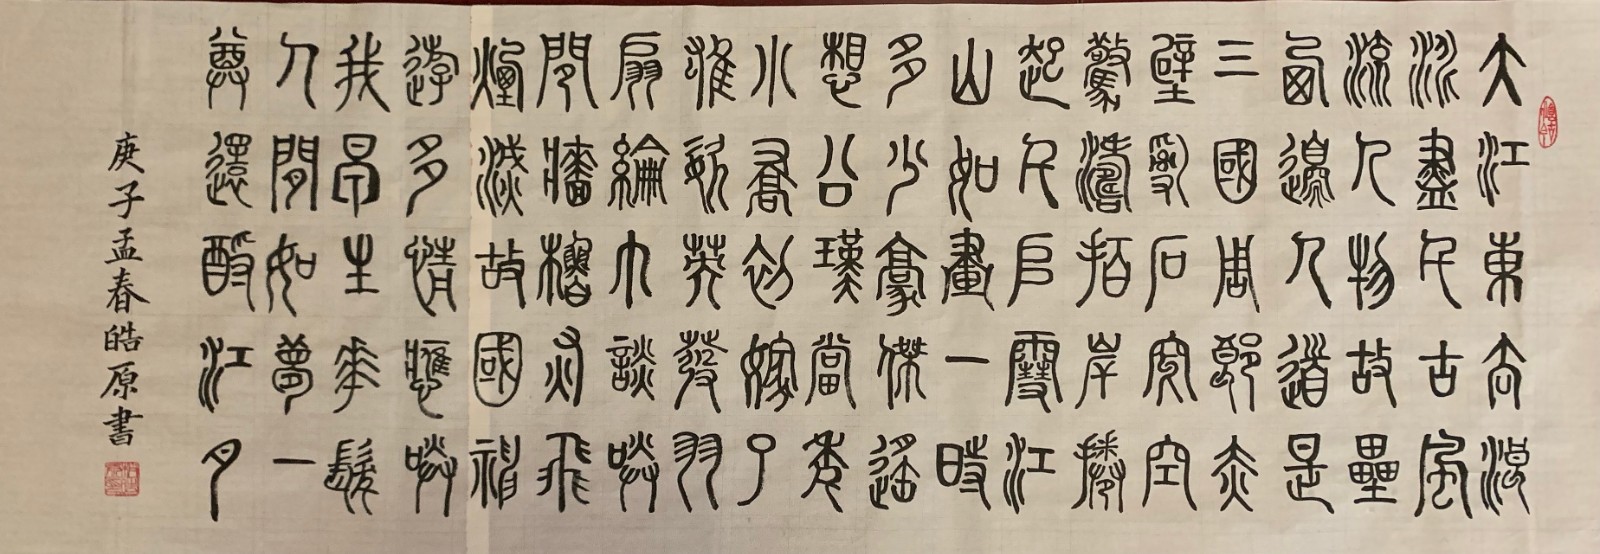 大江東去浪
淘盡千古風
流人物故壘
西邊人道是
三國周郎赤
壁亂石穿空
驚濤拍岸捲
起千堆雪江
山如畫一時
多少豪傑遙
想公瑾當年
小喬初嫁了
雄姿英發羽
扇綸巾談笑
間牆櫓灰飛
煙滅故國神
遊多情應笑
我早生華髮
人間如夢一
尊還酹江月
庚子孟春皓原書